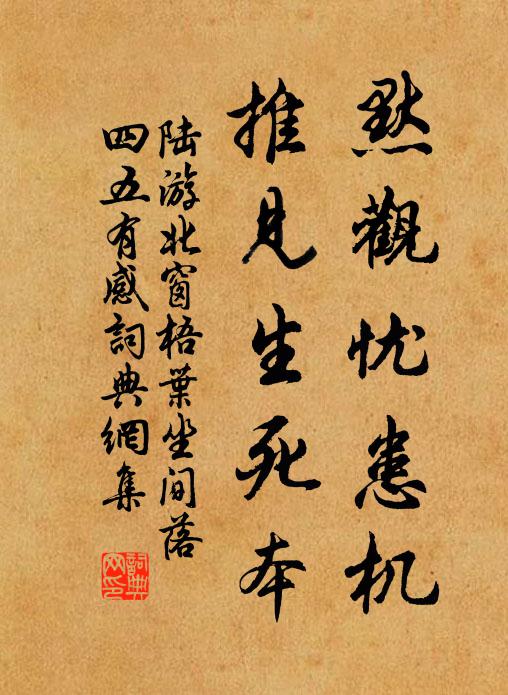 黙觀忧患机
推見生死本
陆游北窗梧葉坐间落
四五有感詞典網集
詞典网印